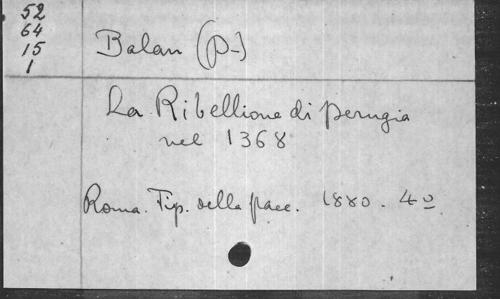 52
64
15
1
Balan (P-)
La Ribellione di Perugia
nel 1368
Roma. Tip. della pace. 1880. 4º